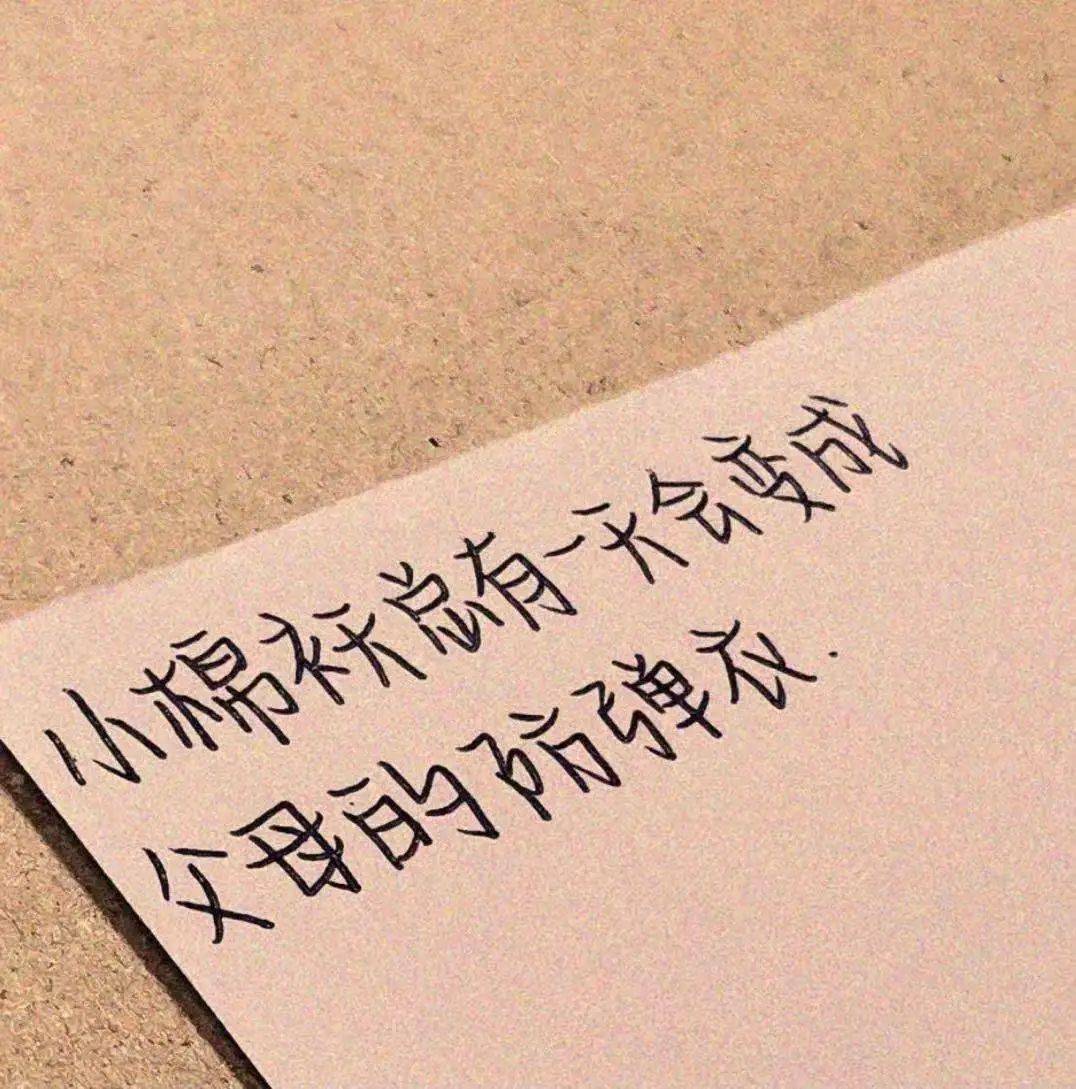 小棉袄总有一天会变成
父母的防弹衣.